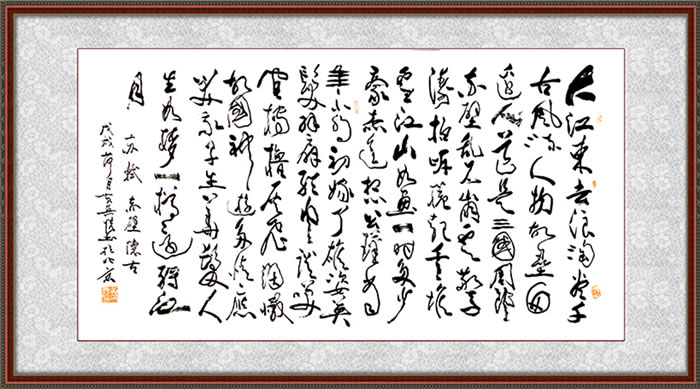 大江東去浪淘盡千
古風流人物故壘西
邊人道是三國周郎
赤壁亂石崩雲驚
濤拍岸捲起千堆
雪江山如畫一時多少
豪傑遙想公瑾當
年小喬初嫁了雄姿英
發羽扇綸巾談笑
間檣櫓灰飛煙滅
故國神遊多情應
笑我早生華髮人
生如夢一樽還酹江
月
蘇軾 赤壁懷古
戊戌 月 於北京